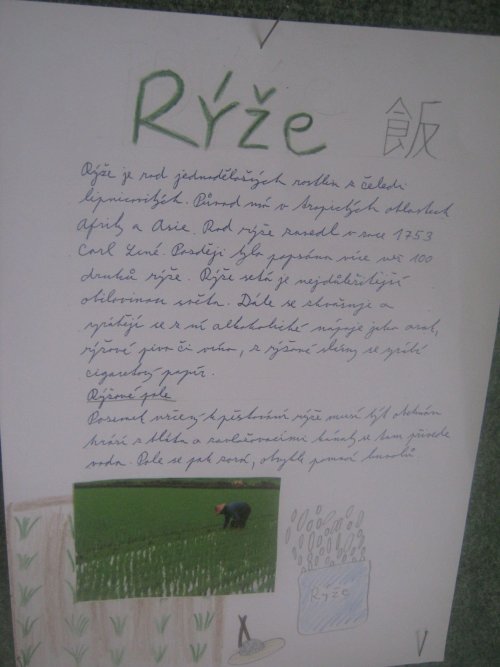 Rýže 飯
Rýže je rod jednoděložných rostlin z čeledi
lipnicovitých. Původ má v tropických oblastech
Afriky a Asie. Rod rýže zavedl v roce 1753
Carl Liné. Později bylo popsáno více než 100
druhů rýže. Rýže setá je nejdůležitější
obilovinou světa. Dále se zkvašuje a
vyrábějí se z ní alkoholické nápoje jako arak,
rýžové pivo či víno, z rýžové slámy se vyrábí
cigaretový papír.
Rýžové pole
Pozemek určený k pěstování rýže musí být obehnán
hrází z bláta a zavlažovacími kanály se tam přivede
voda. Pole se pak zorá, obvykle pomocí buvolů
Rýže